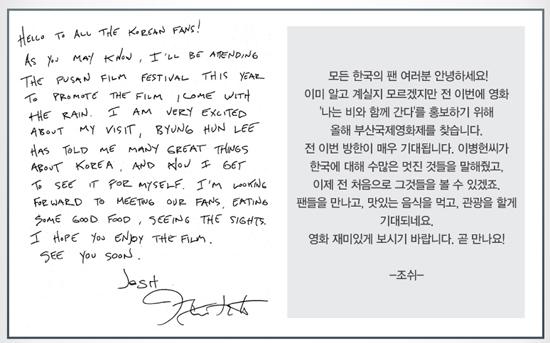 HELLO TO ALL THE KOREAN FANS!
AS YOU MAY KNOW, I'LL BE ATENDING
THE PUSAN FILM FESTIVAL THIS YEAR
TO PROMOTE THE FILM, I COME WITH
THE RAIN. I AM VERY EXCITED
ABOUT MY VISIT, BYUNG HUN LEE
HAS TOLD ME MANY GREAT THINGS
ABOUT KOREA, AND NOW I GET
TO SEE IT FOR MYSELF. I'M LOOKING
FORWARD TO MEETING OUR FANS, EATING
SOME GOOD FOOD, SEEING THE SIGHTS.
I HOPE YOU ENJOY THE FILM.
SEE YOU SOON.
JOSH
모든 한국의 팬 여러분 안녕하세요!
이미 알고 계실지 모르겠지만 전 이번에 영화
'나는 비와 함께 간다'를 홍보하기 위해
올해 부산국제영화제를 찾습니다.
전 이번 방한이 매우 기대됩니다. 이병헌씨가
한국에 대해 수많은 멋진 것들을 말해줬고,
이제 전 처음으로 그것들을 볼 수 있겠죠.
팬들을 만나고, 맛있는 음식을 먹고, 관광을 할게
기대되네요.
영화 재미있게 보시기 바랍니다. 곧 만나요!
–조쉬–